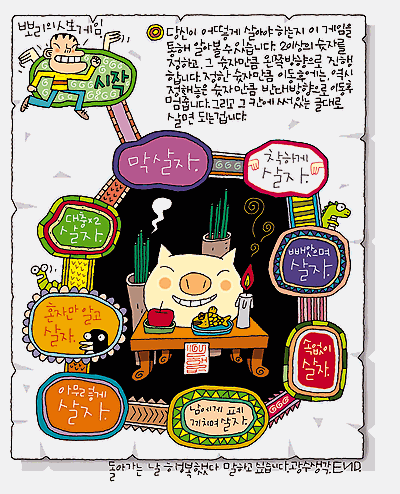 뽀리의 인생게임
시작
당신이 어떻게 살아야 하는지 이 게임을
통해 알아볼 수 있습니다. 20이상의 숫자를
정하고, 그 숫자만큼 왼쪽방향으로 진행
합니다. 정한 숫자만큼 이동후에는, 역시
정해놓은 숫자만큼 반대방향으로 이동후
멈춥니다. 그리고 그 칸에 써 있는 글대로
살면 되는겁니다.
막살자.
착하게
살자.
대충x2
살자.
빼앗으며
살자.
혼자만 알고
살자.
속없이
살자.
아무렇게
살자.
남에게 폐
끼치며 살자.
돌아가는 날 행복했다 말하고 싶습니다. 광수생각. END.